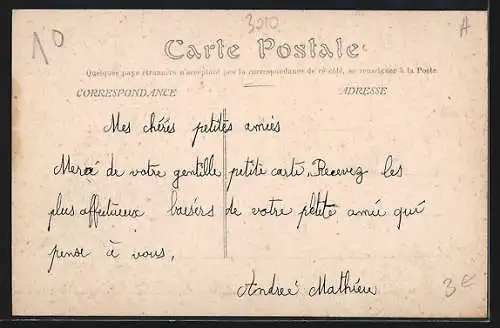 10
3010
A
Carte Postale
Quelques pays étrangers n'acceptant pas la correspondance de ce côté, se renseigner à la Poste
CORRESPONDANCE
ADRESSE
Mes chéris petites amies
Merci de votre gentille petite carte, Recevez les
plus affectueux baisers de votre petite amie qui
pense à vous,
Andreé Mathieu
3€